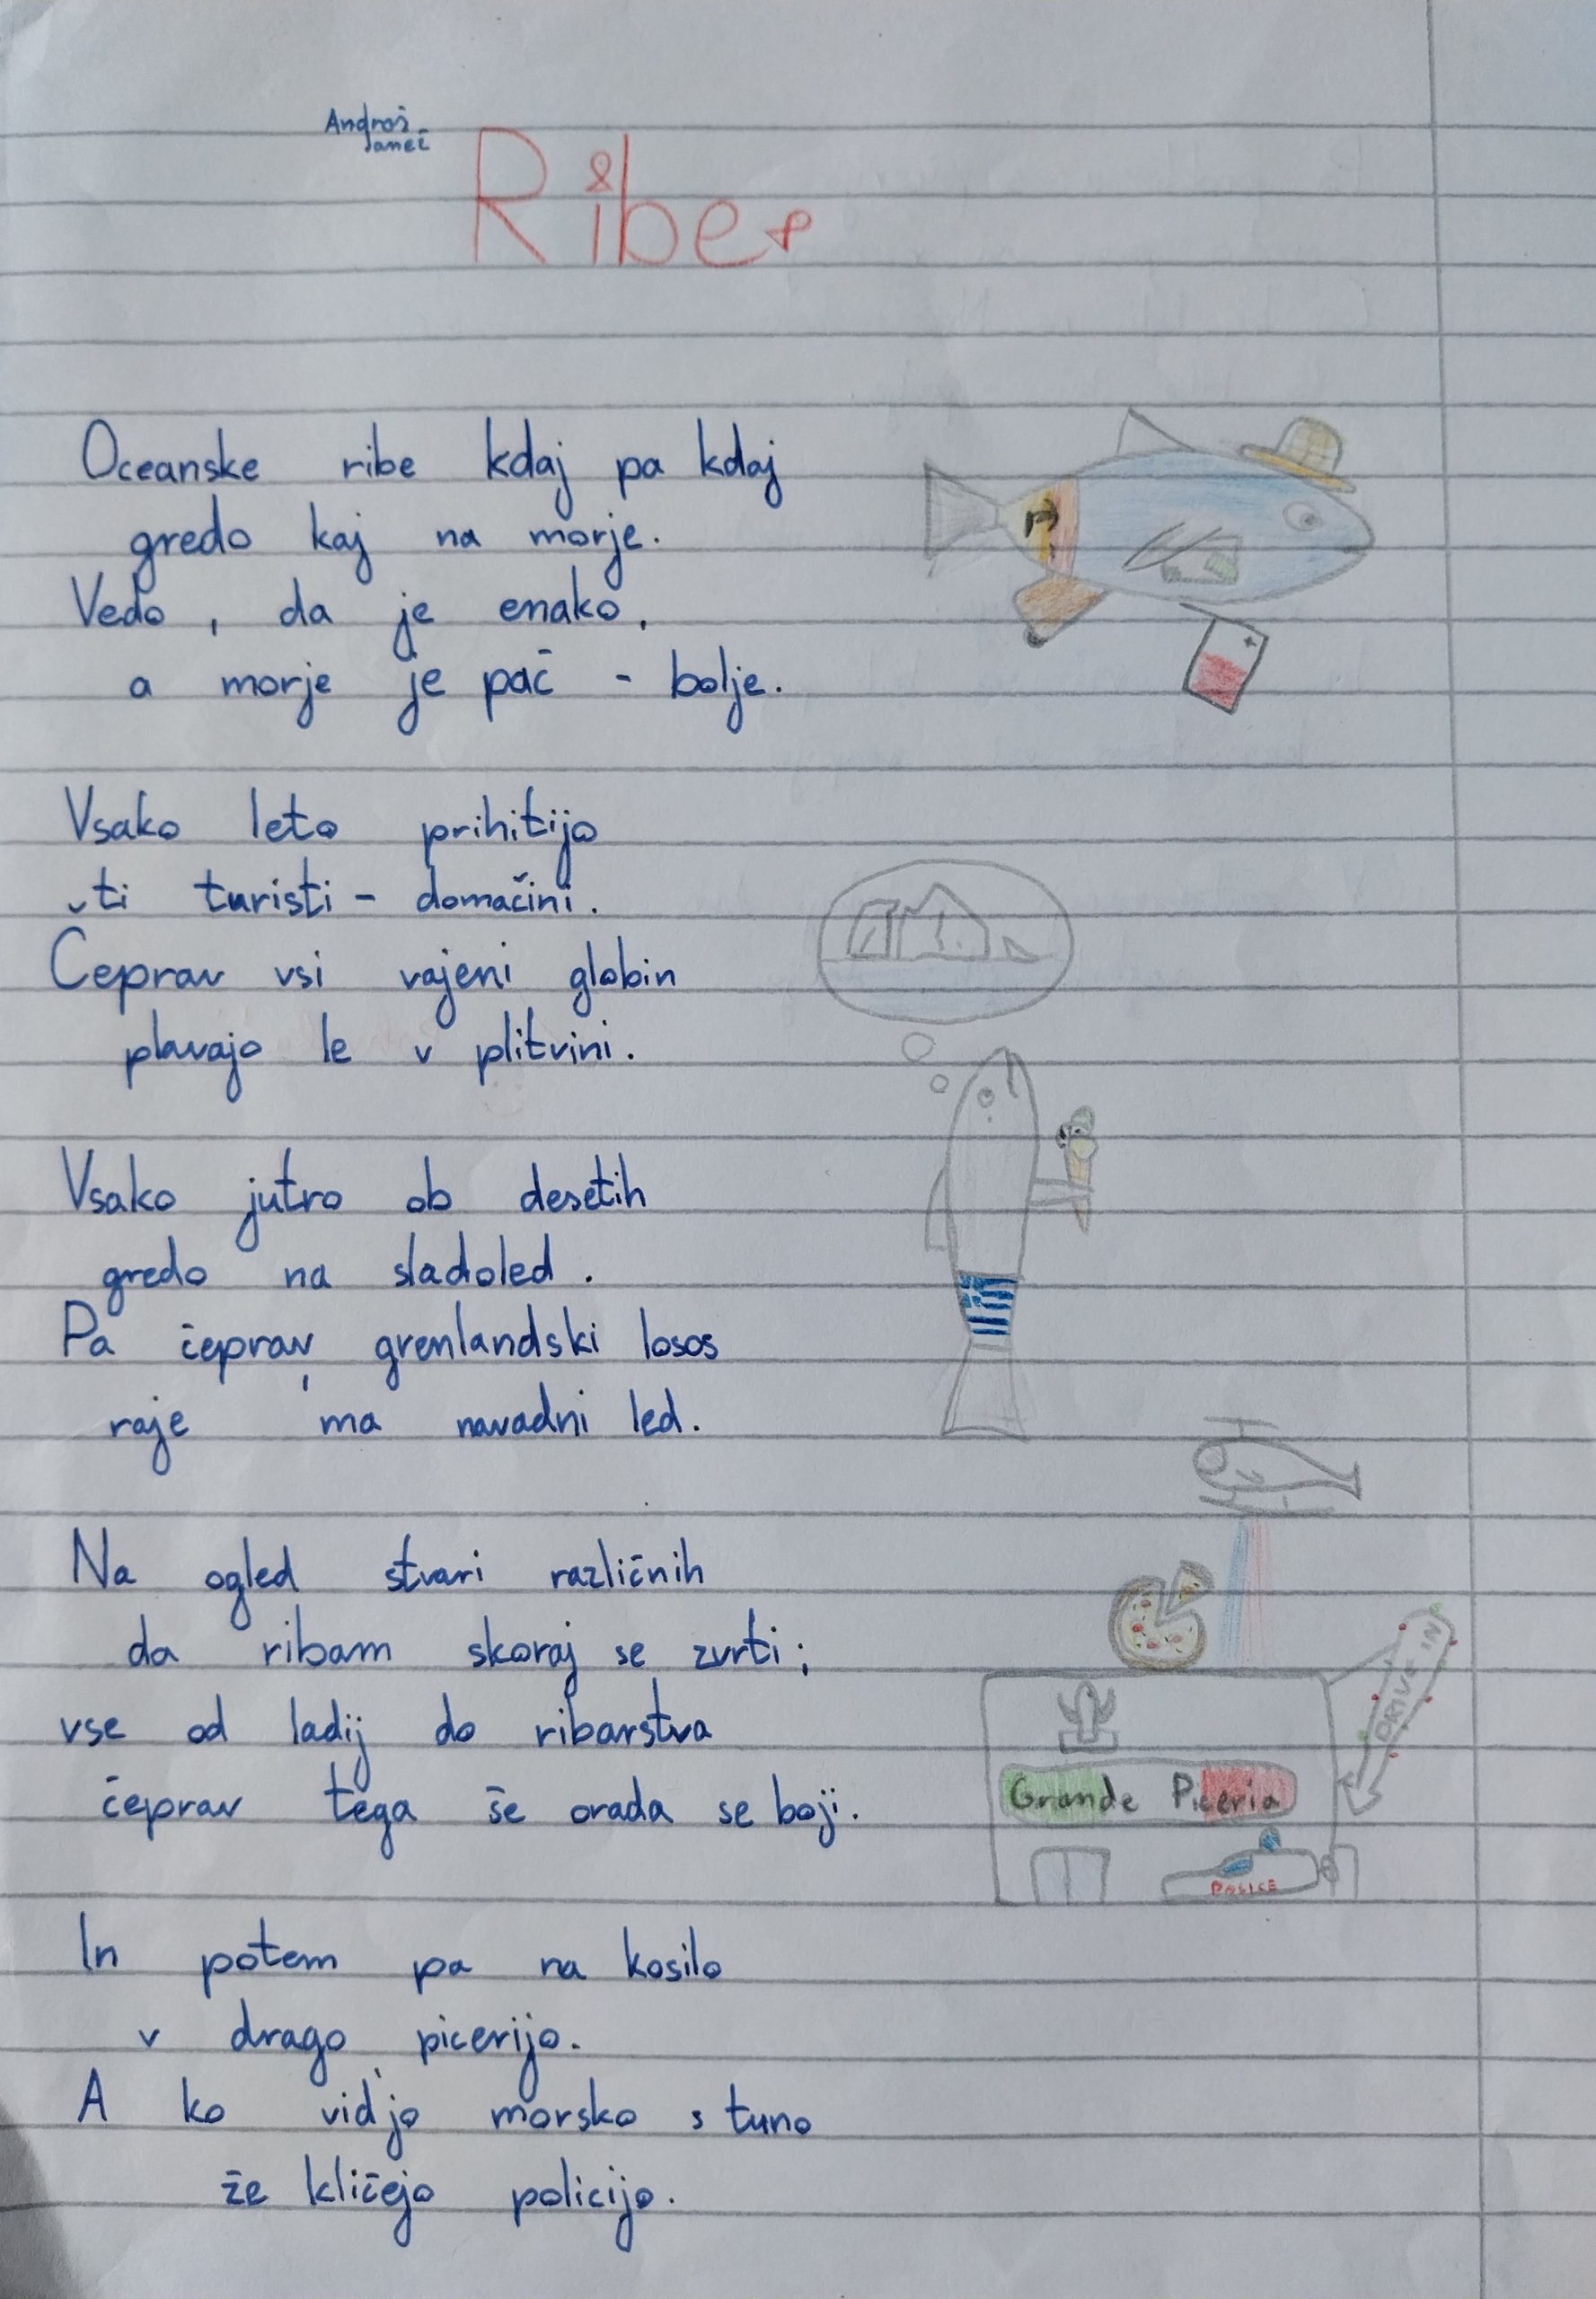 Ribe
Oceanske ribe kdaj pa kdaj
gredo kaj na morje.
Vedo, da je enako,
a morje je pač - bolje.
Vsako leto prihitijo
ti turisti - domačini.
Čeprav vsi vajeni globin
plavajo le v plitvini.
Vsako jutro ob desetih
gredo na sladoled.
Pa čeprav grenlandski losos
raje ima navadni led.
Na ogled stvari različnih
da ribam skoraj se zvrti;
vse od ladij do ribarstva
čeprav tega še orada se boji.
DRIVE IN
Grande Piceria
POLICE
In potem pa na kosilo
v drago picerijo.
A ko vidijo morsko s tuno
že kličejo policijo.